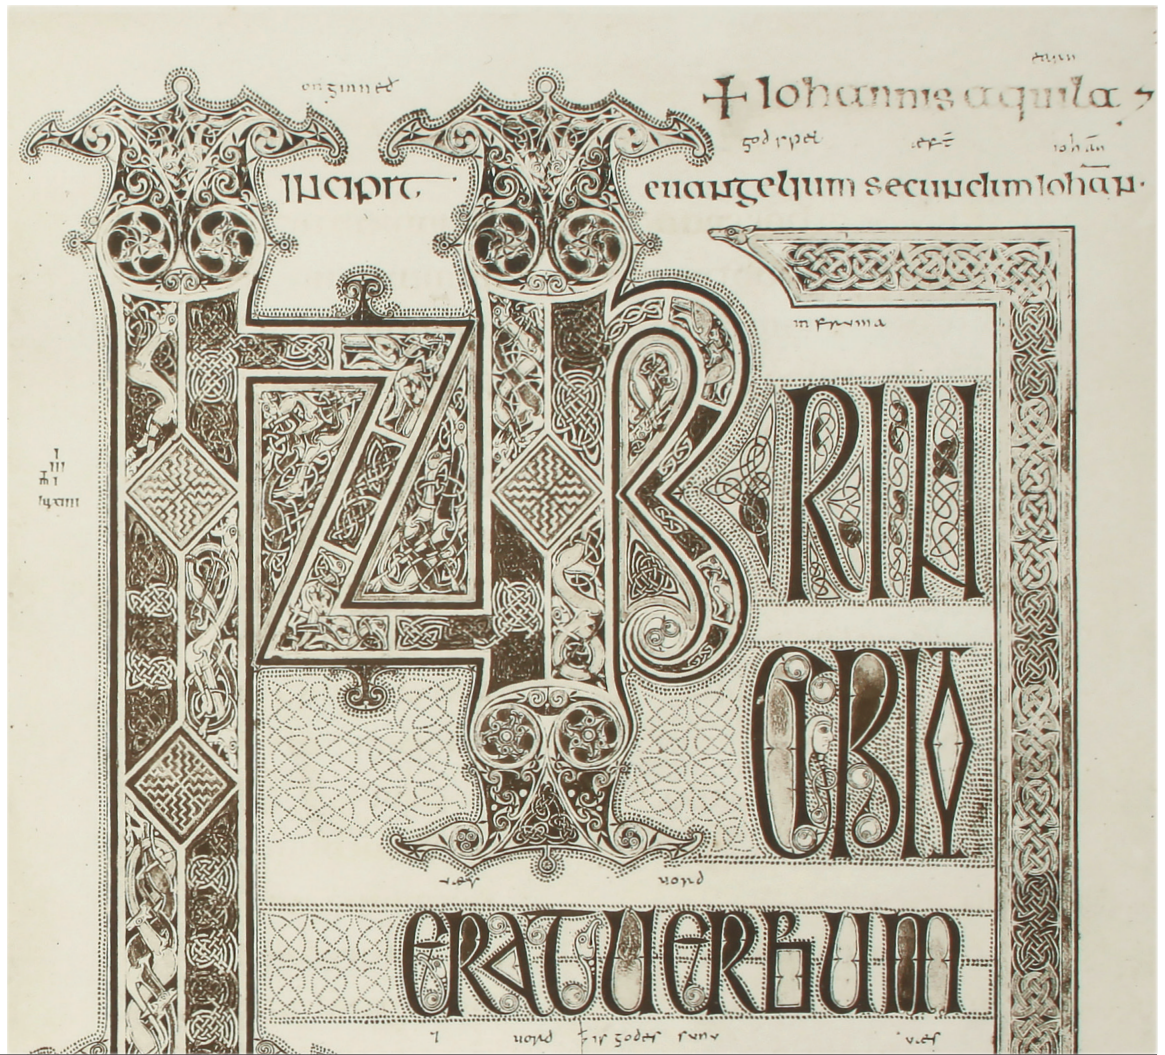 onginneð
+ Iohannis aquila
godspel æft̄ iohān
Incipit euangelium secundum iohān·
in fruma
INPRIN
CIPIO
wæs word
ERATUERBUM
⁊ word is godes sunu wæs